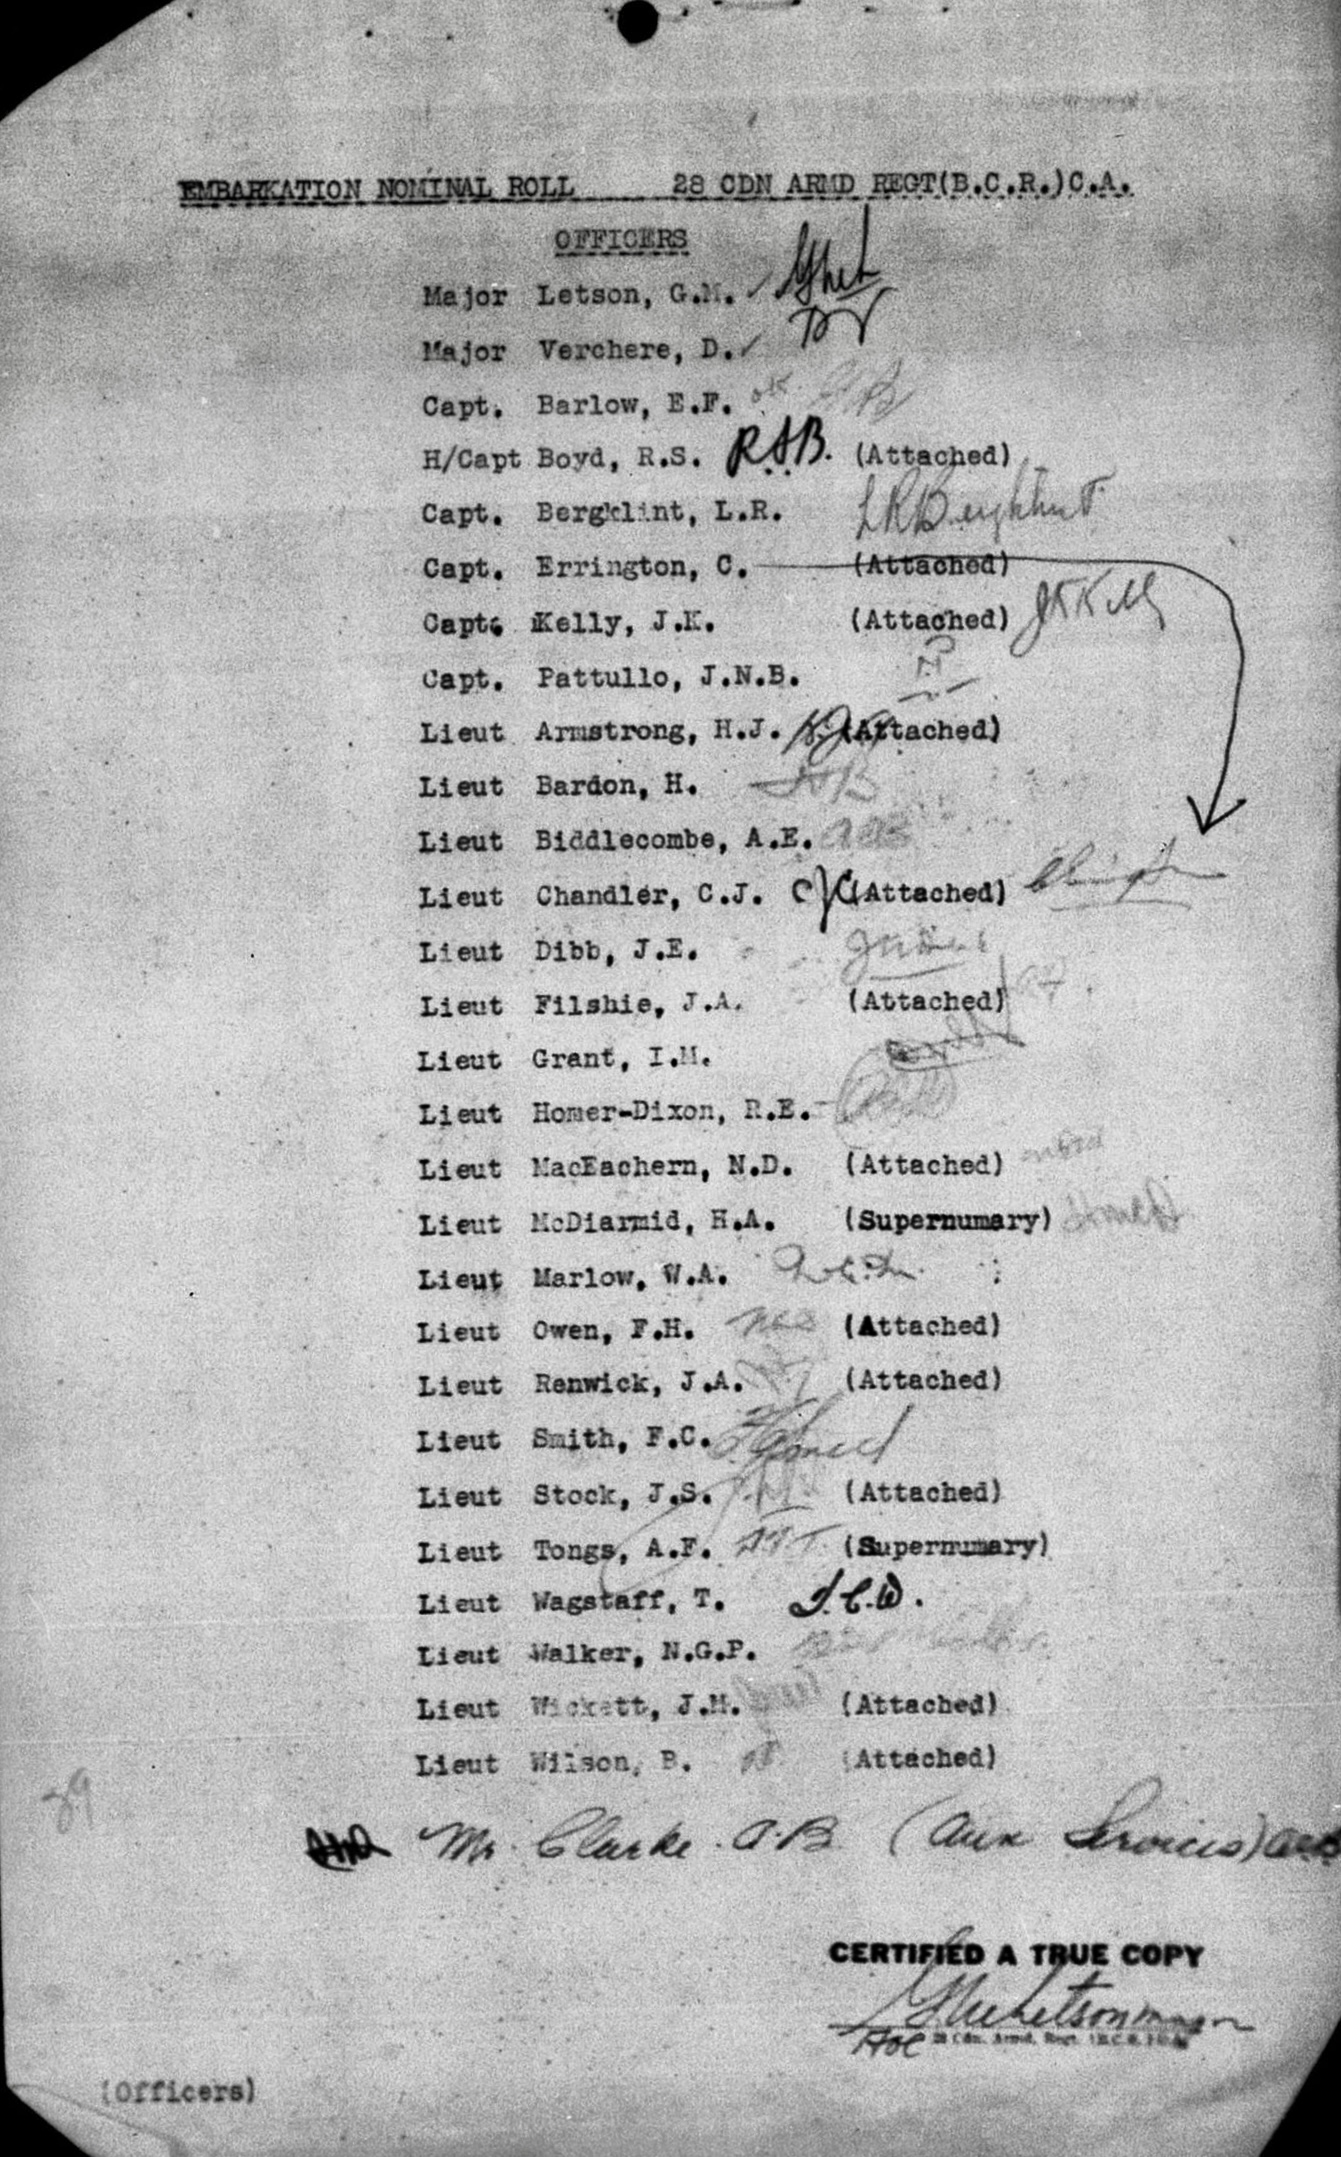 EMBARKATION NOMINAL ROLL 28 CDN ARMD REGT(B.C.R.)C.A.
OFFICERS
Major Letson, G.M. ✓
Major Verchere, D. ✓ DV
Capt. Barlow, E.F. ok
H/Capt Boyd, R.S. R.S.B. (Attached)
Capt. Bergklint, L.R. LR Bergklint
Capt. Errington, C. (Attached)
Capt. Kelly, J.K. (Attached) JK Kelly
Capt. Pattullo, J.N.B.
Lieut Armstrong, H.J. H.J.A (Attached)
Lieut Bardon, H. HB
Lieut Biddlecombe, A.E. AEB
Lieut Chandler, C.J. CJC (Attached)
Lieut Dibb, J.E.
Lieut Filshie, J.A. (Attached)
Lieut Grant, I.M.
Lieut Homer-Dixon, R.E.
Lieut MacEachern, N.D. (Attached)
Lieut McDiarmid, H.A. (Supernumary)
Lieut Marlow, W.A.
Lieut Owen, F.H. (Attached)
Lieut Renwick, J.A. (Attached)
Lieut Smith, F.C.
Lieut Stock, J.S. (Attached)
Lieut Tongs, A.F. AFT (Supernumary)
Lieut Wagstaff, T. T.C.W.
Lieut Walker, N.G.P.
Lieut Wickett, J.M. (Attached)
Lieut Wilson, B. (Attached)
39
Mr. Clarke A.B (Aux Services)
CERTIFIED A TRUE COPY
GM Letson Major
28 Cdn. Armd. Regt. (B.C.R.)
(Officers)